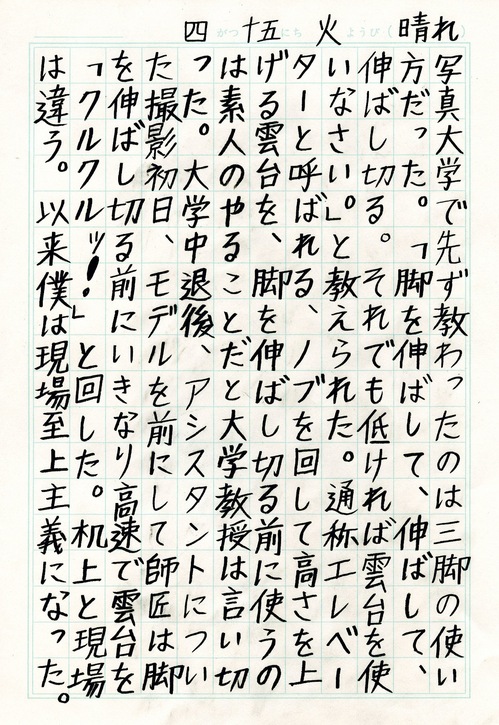 四がつ十五にち 火ようび(晴れ)
写真大学で先ず教わったのは三脚の使い
方だった。「脚を伸ばして、伸ばして、
伸ばし切る。それでも低ければ雲台を使
いなさい。」と教えられた。通称エレベー
ターと呼ばれる、ノブを回して高さを上
げる雲台を、脚を伸ばし切る前に使うの
は素人のやることだと大学教授は言い切
った。大学中退後、アシスタントについ
た撮影初日、モデルを前にして師匠は脚
を伸ばし切る前にいきなり高速で雲台を
「クルクルッ!」と回した。机上と現場
は違う。以来僕は現場至上主義になった。